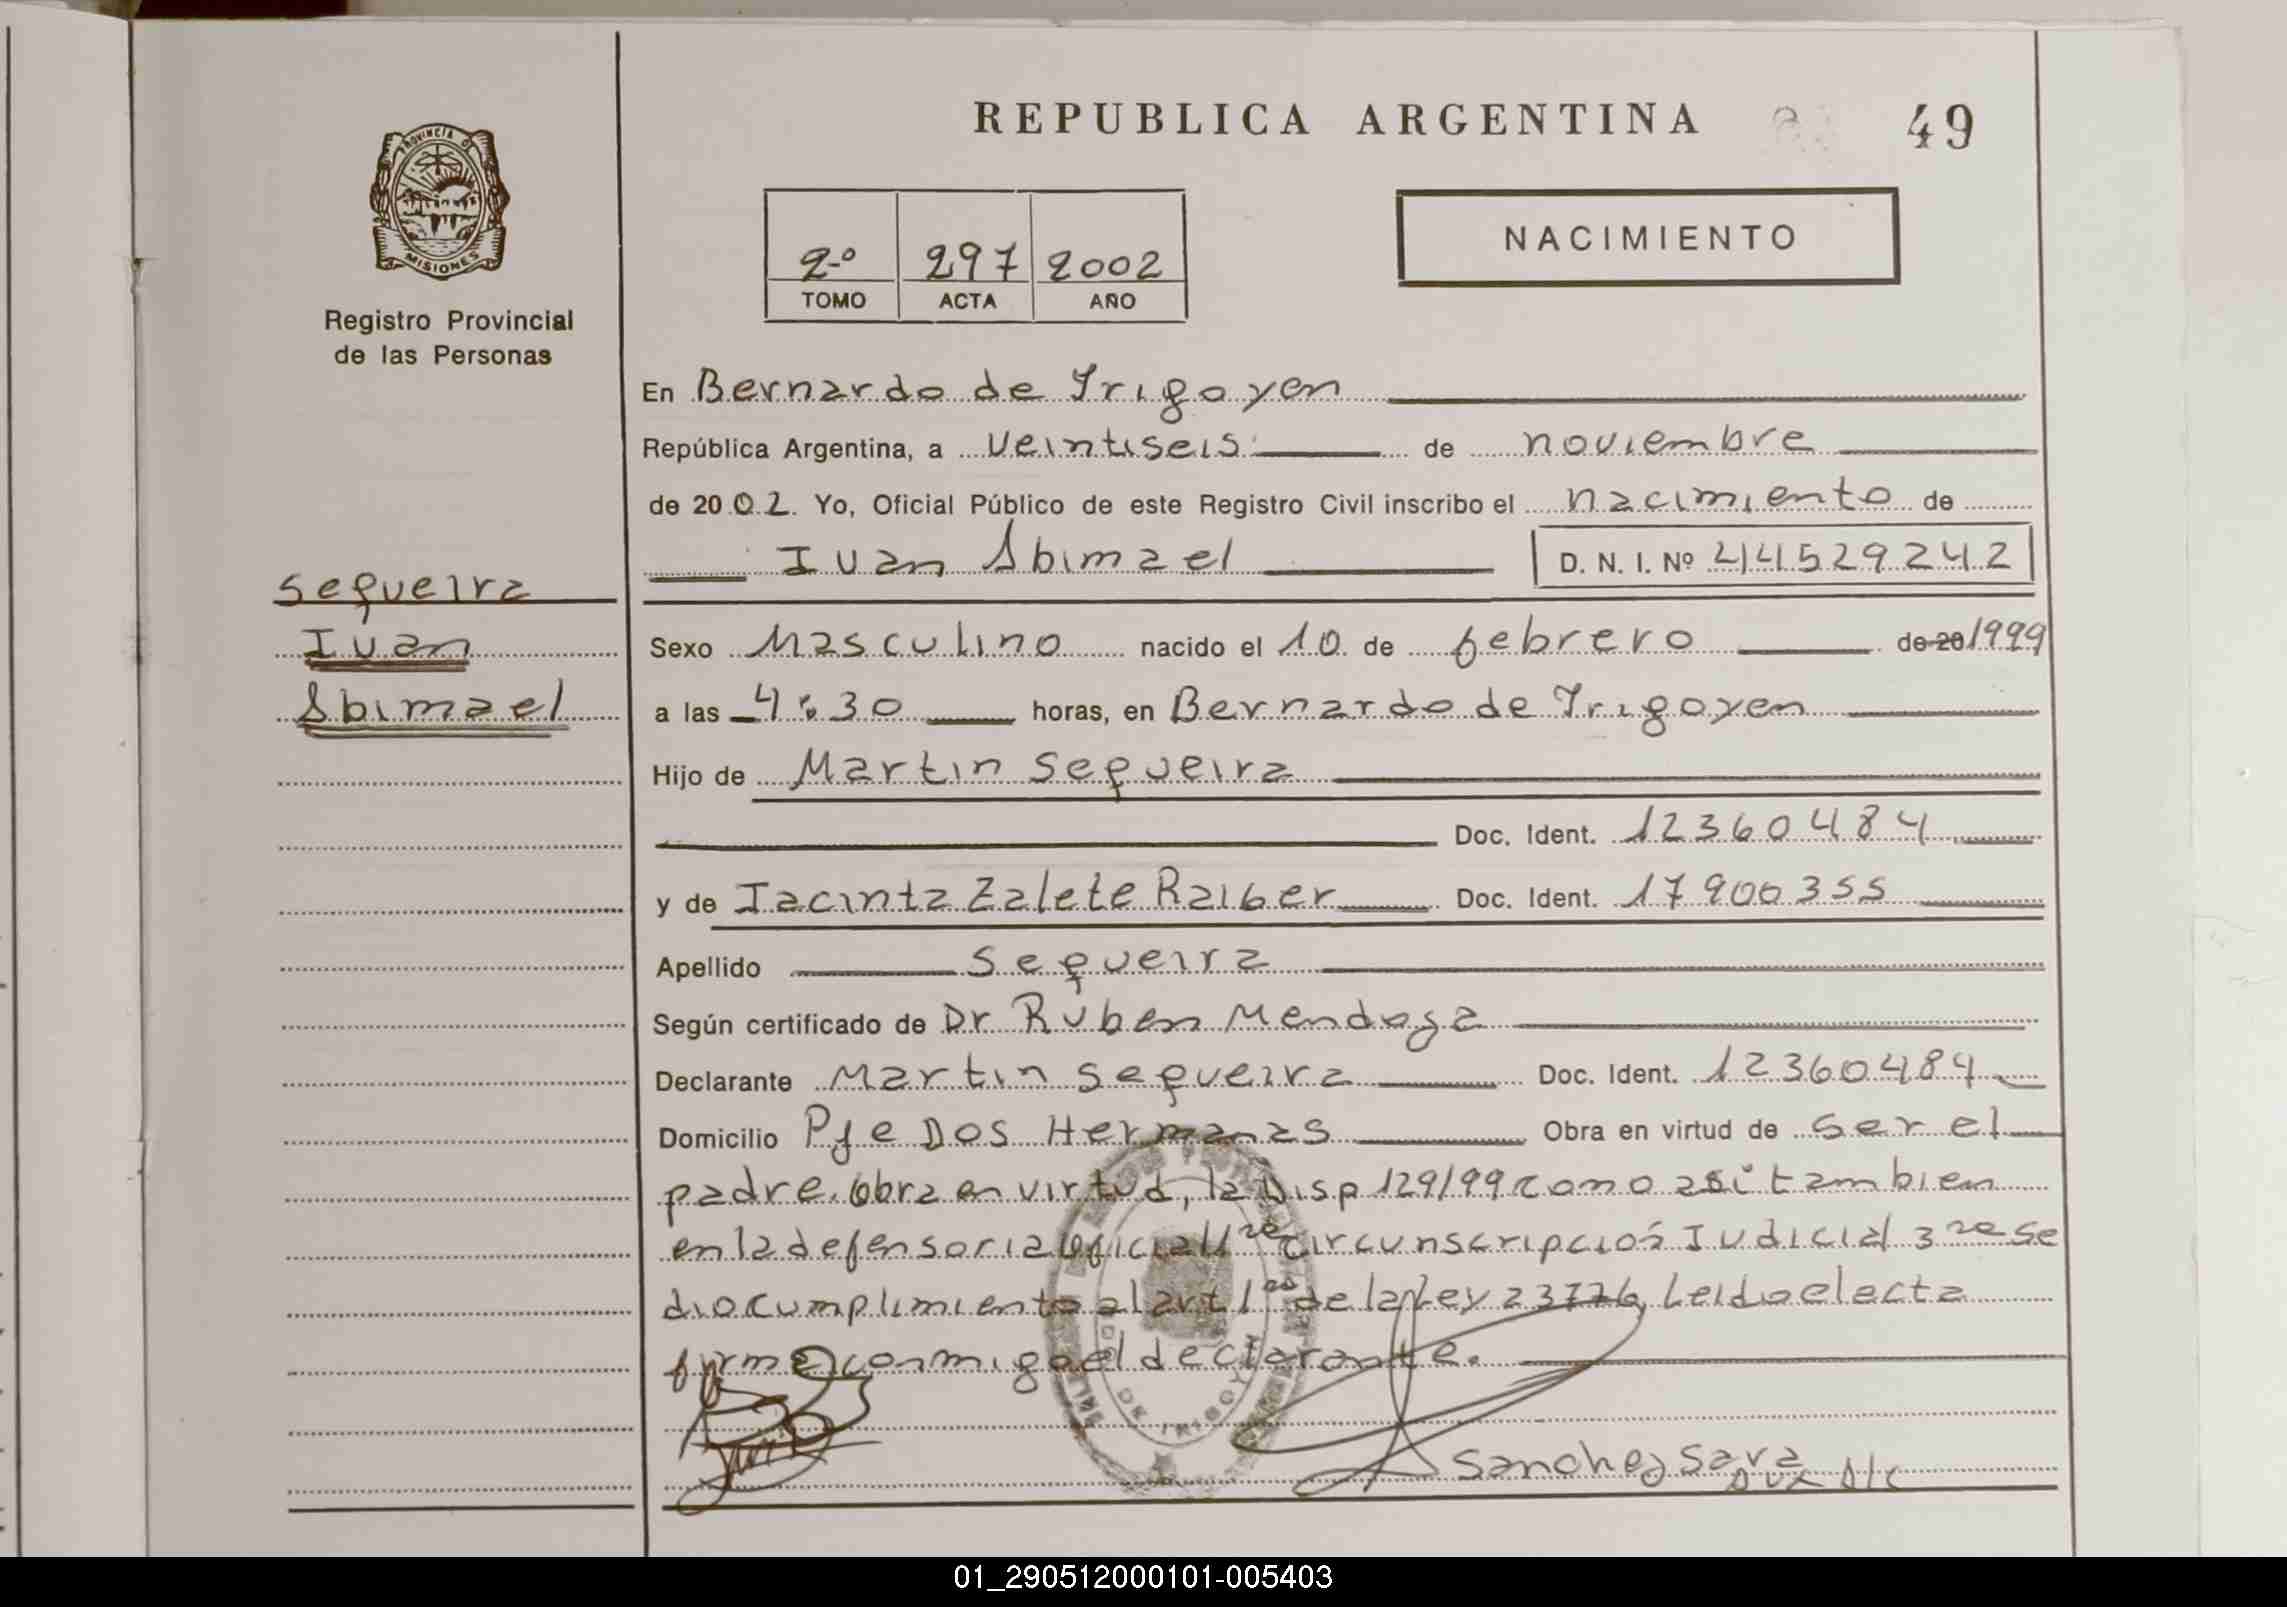 REPUBLICA ARGENTINA
49
PROVINCIA DE
MISIONES
Registro Provincial
de las Personas
2º 297 2002
TOMO ACTA AÑO
NACIMIENTO
En Bernardo de Irigoyen
República Argentina, a veintiseis de noviembre
de 2002. Yo, Oficial Público de este Registro Civil inscribo el nacimiento de
Ivan Abimael D. N. I. Nº 44529242
Sequeira
Ivan
Abimael
Sexo Masculino nacido el 10 de febrero de 20 1999
a las 4:30 horas, en Bernardo de Irigoyen
Hijo de Martin Sequeira
Doc. Ident. 12360484
y de Jacinta Zalete Raiber Doc. Ident. 17900355
Apellido Sequeira
Según certificado de Dr Ruben Mendoza
Declarante Martin Sequeira Doc. Ident. 12360484
Domicilio Pje Dos Hermanas Obra en virtud de ser el
padre. Obra en virtud, la Disp 129/99 como asi tambien
en la defensoria oficial 1ra circunscripcios Judicial 3ra se
dio cumplimiento al art 1ro de la Ley 23776, Leido el acta
firma conmigo el declarante.
DE IRIGOYEN
Sanchez Sara
01_290512000101-005403